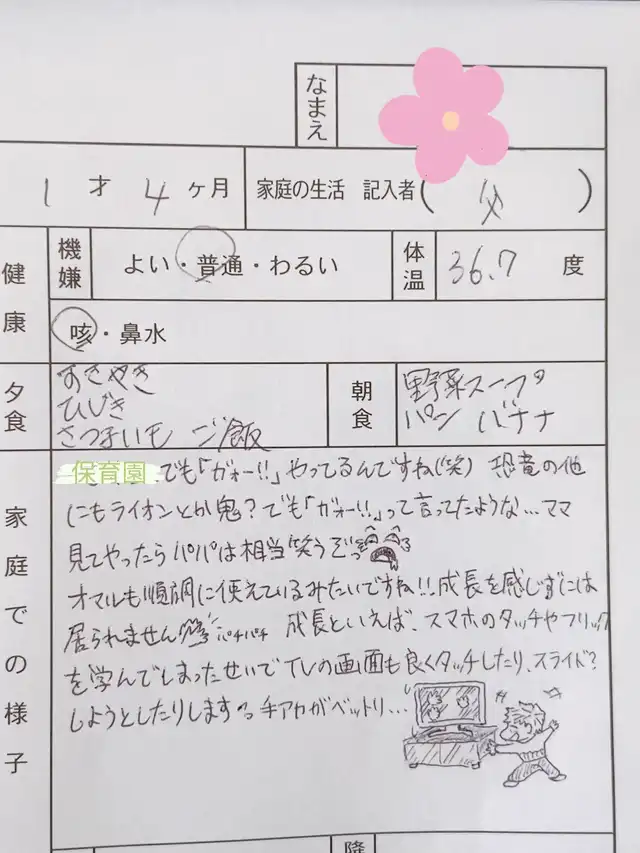 なまえ
1才4ヶ月 家庭の生活 記入者(父)
健康 機嫌 よい・普通・わるい 体温 36.7度
咳・鼻水
夕食 すきやき
ひじき
さつまいも ご飯
朝食 野菜スープ
パン バナナ
家庭での様子
保育園でも「ガオー!!」やってるんですね(笑) 恐竜の他
にもライオンとか鬼?でも「ガオー!!」って言ってたような…ママ
見てやったらパパは相当笑うぞっ
オマルも順調に使えているみたいですね!!成長を感じずには
居られません パチパチ 成長といえば、スマホのタッチやフリック
を学んでしまったせいでTVの画面も良くタッチしたり、スライド?
しようとしたりしますっ手アカがベットリ...
降